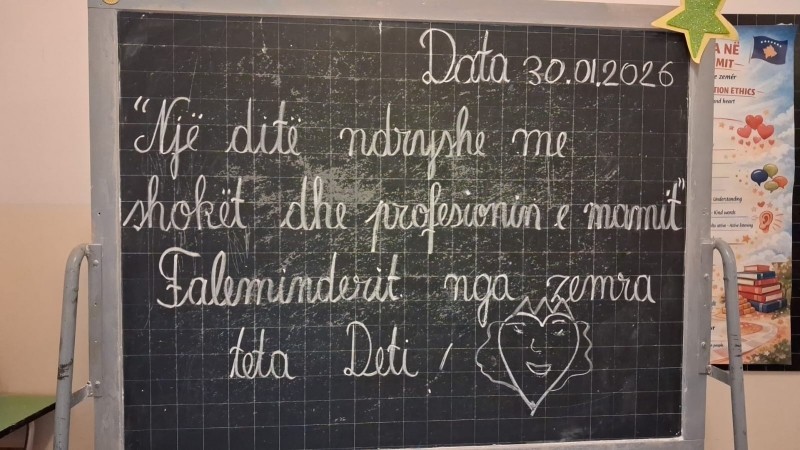 Data 30.01.2026
"Një ditë ndryshe me
shokët dhe profesionin e mamit"
Faleminderit nga zemra
teta Deti /
A NË
MIT
e zemër
TION ETHICS
nd heart
Understanding
Kind words
Active listening